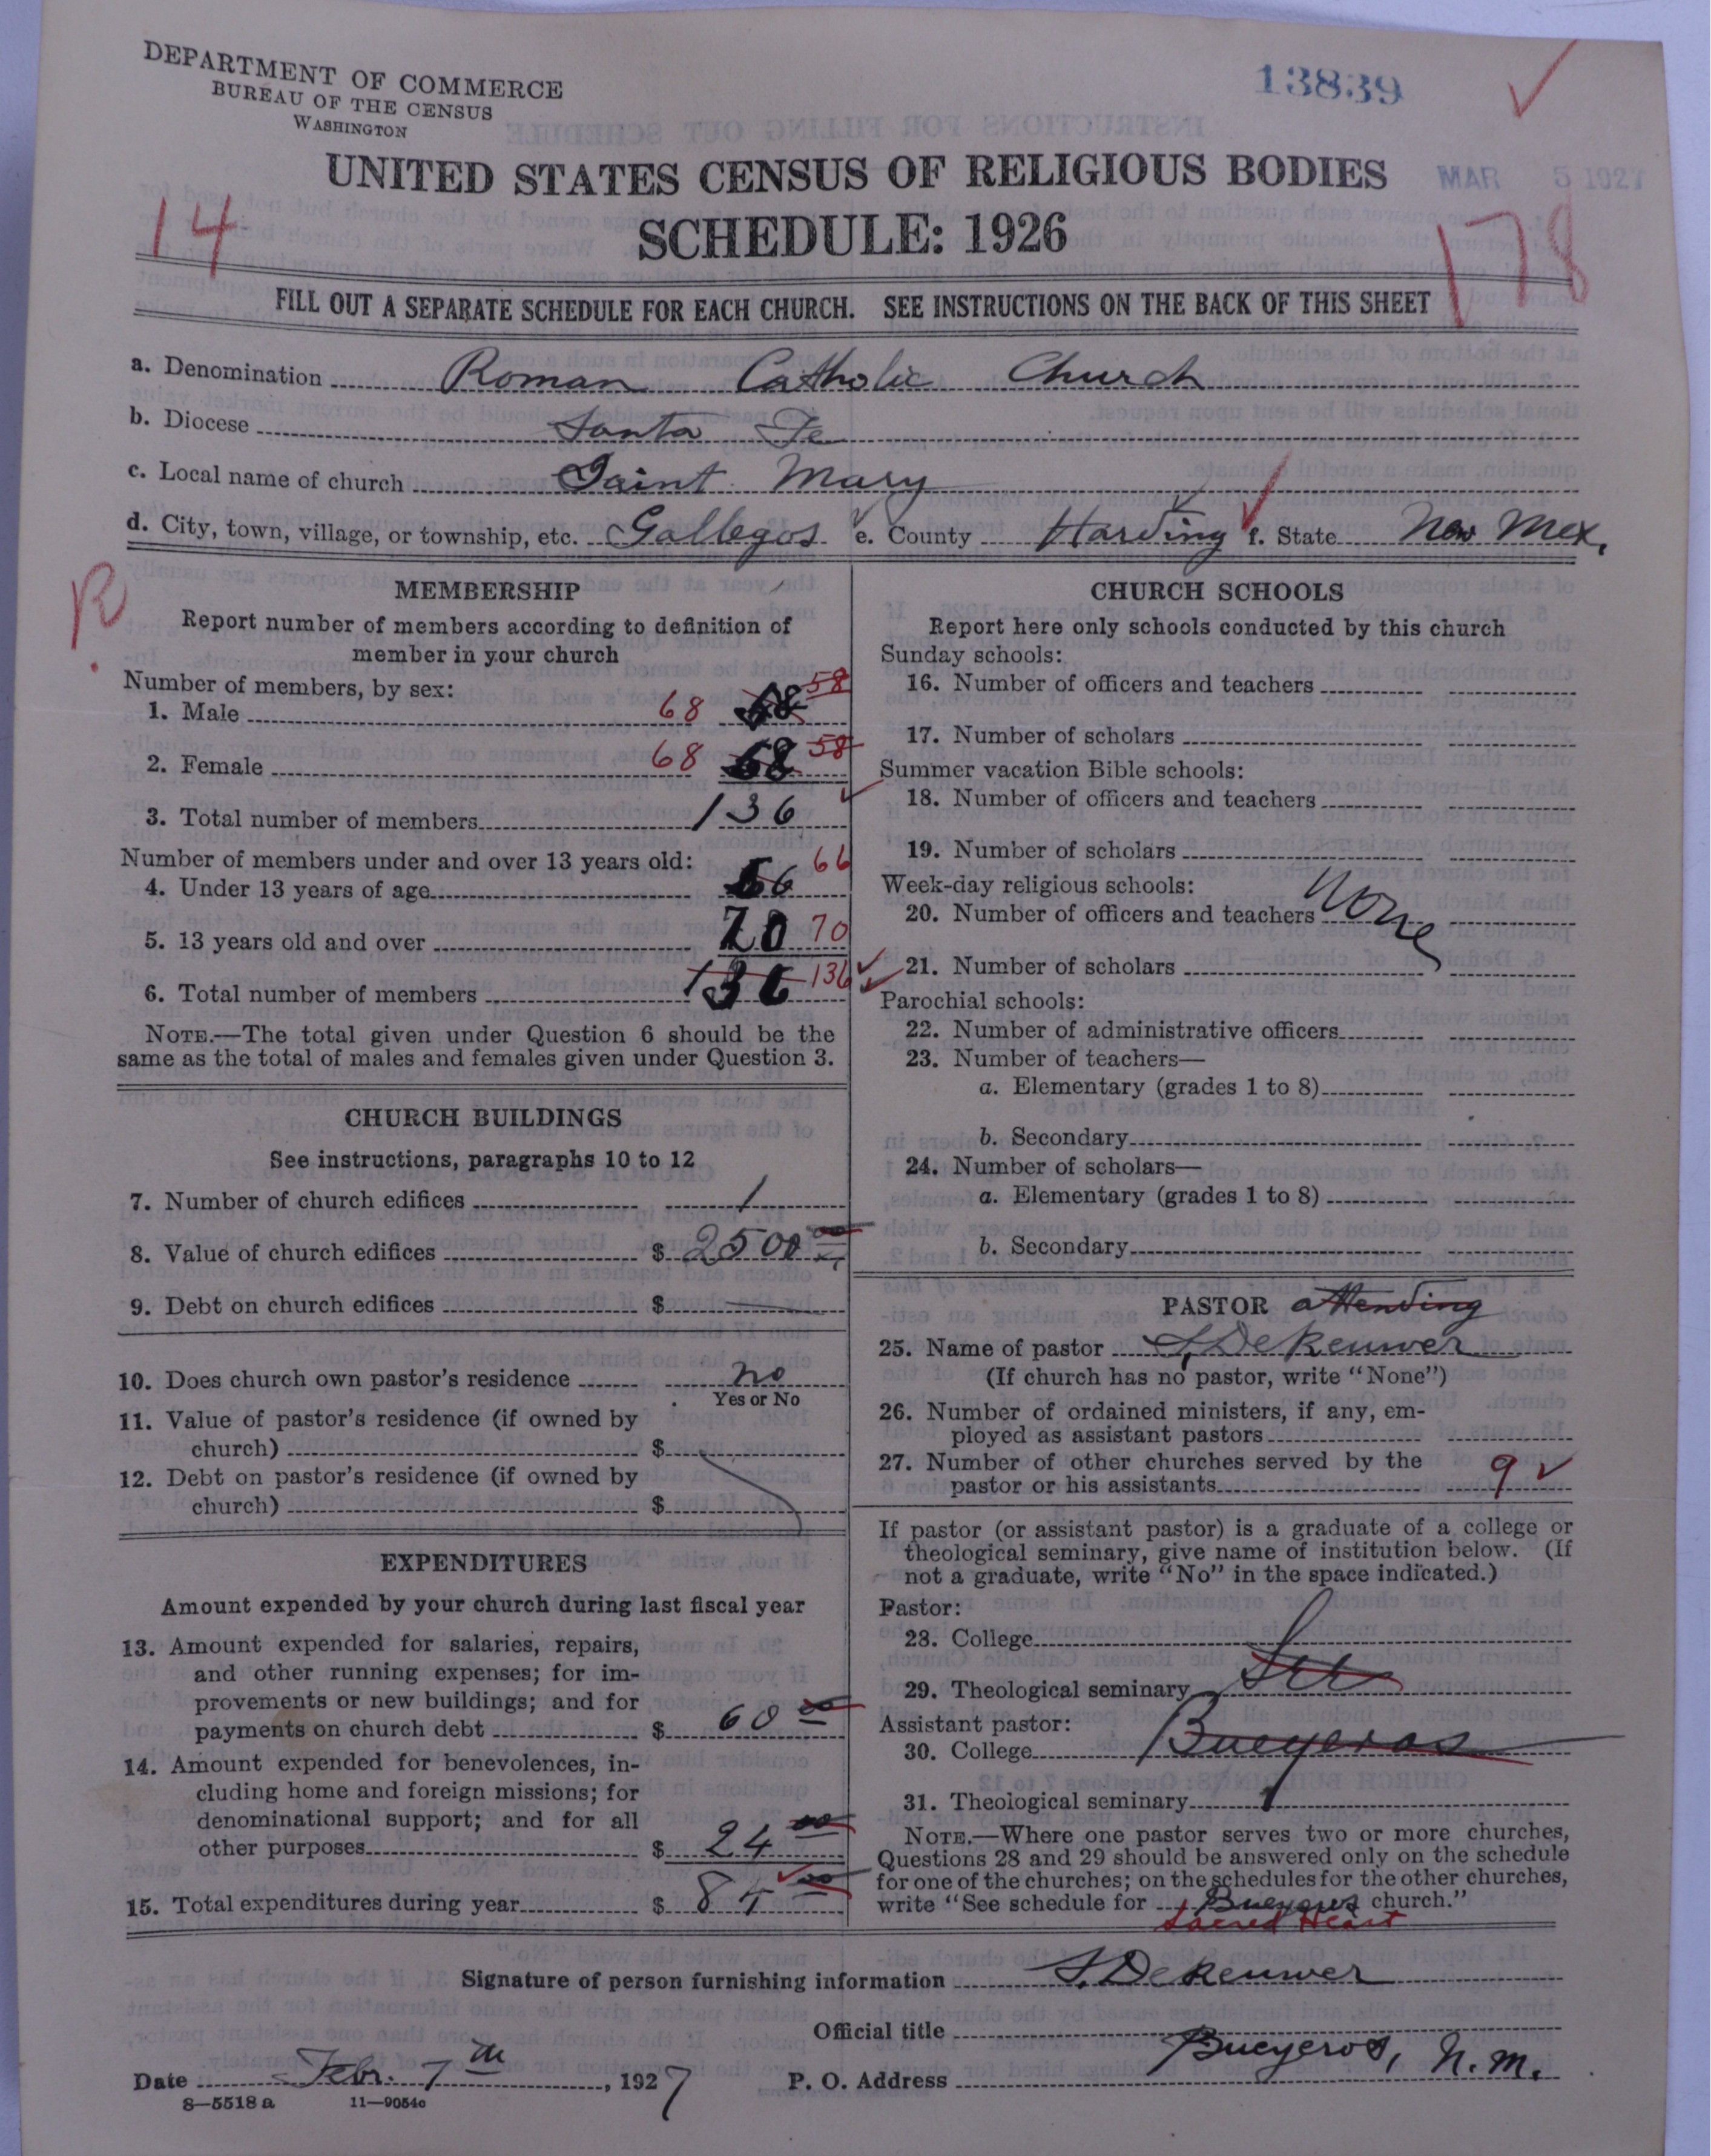 DEPARTMENT OF COMMERCE
BUREAU OF THE CENSUS
WASHINGTON
13839
UNITED STATES CENSUS OF RELIGIOUS BODIES
MAR 5 1927
SCHEDULE: 1926
14
178
FILL OUT A SEPARATE SCHEDULE FOR EACH CHURCH. SEE INSTRUCTIONS ON THE BACK OF THIS SHEET
a. Denomination Roman Catholic Church
b. Diocese Santa Fe
c. Local name of church Saint Mary
d. City, town, village, or township, etc. Gallegos e. County Harding f. State New Mex.
R.
MEMBERSHIP
Report number of members according to definition of
member in your church
Number of members, by sex:
1. Male 68 68 58
2. Female 68 68 58
3. Total number of members 136
Number of members under and over 13 years old:
4. Under 13 years of age 66 66
5. 13 years old and over 70 70
6. Total number of members 136 136
NOTE.—The total given under Question 6 should be the
same as the total of males and females given under Question 3.
CHURCH BUILDINGS
See instructions, paragraphs 10 to 12
7. Number of church edifices 1
8. Value of church edifices $ 2500 00
9. Debt on church edifices $
10. Does church own pastor's residence no
Yes or No
11. Value of pastor's residence (if owned by
church) $
12. Debt on pastor's residence (if owned by
church) $
EXPENDITURES
Amount expended by your church during last fiscal year
13. Amount expended for salaries, repairs,
and other running expenses; for im-
provements or new buildings; and for
payments on church debt $ 60 00
14. Amount expended for benevolences, in-
cluding home and foreign missions; for
denominational support; and for all
other purposes $ 24 00
15. Total expenditures during year $ 84 00
CHURCH SCHOOLS
Report here only schools conducted by this church
Sunday schools:
16. Number of officers and teachers
17. Number of scholars
Summer vacation Bible schools:
18. Number of officers and teachers
19. Number of scholars
Week-day religious schools:
20. Number of officers and teachers None
21. Number of scholars
Parochial schools:
22. Number of administrative officers
23. Number of teachers—
a. Elementary (grades 1 to 8)
b. Secondary
24. Number of scholars—
a. Elementary (grades 1 to 8)
b. Secondary
PASTOR attending
25. Name of pastor S. DeKeuwer
(If church has no pastor, write "None")
26. Number of ordained ministers, if any, em-
ployed as assistant pastors
27. Number of other churches served by the
pastor or his assistants 9
If pastor (or assistant pastor) is a graduate of a college or
theological seminary, give name of institution below. (If
not a graduate, write "No" in the space indicated.)
Pastor:
28. College
29. Theological seminary See
Assistant pastor:
30. College Bueyeros
31. Theological seminary
NOTE.—Where one pastor serves two or more churches,
Questions 28 and 29 should be answered only on the schedule
for one of the churches; on the schedules for the other churches,
write "See schedule for Bueyeros church."
Sacred Heart
Signature of person furnishing information S. DeKeuwer
Official title
Date Febr. 7th, 1927 P. O. Address Bueyeros, N. M.
8—5518 a 11—9054c